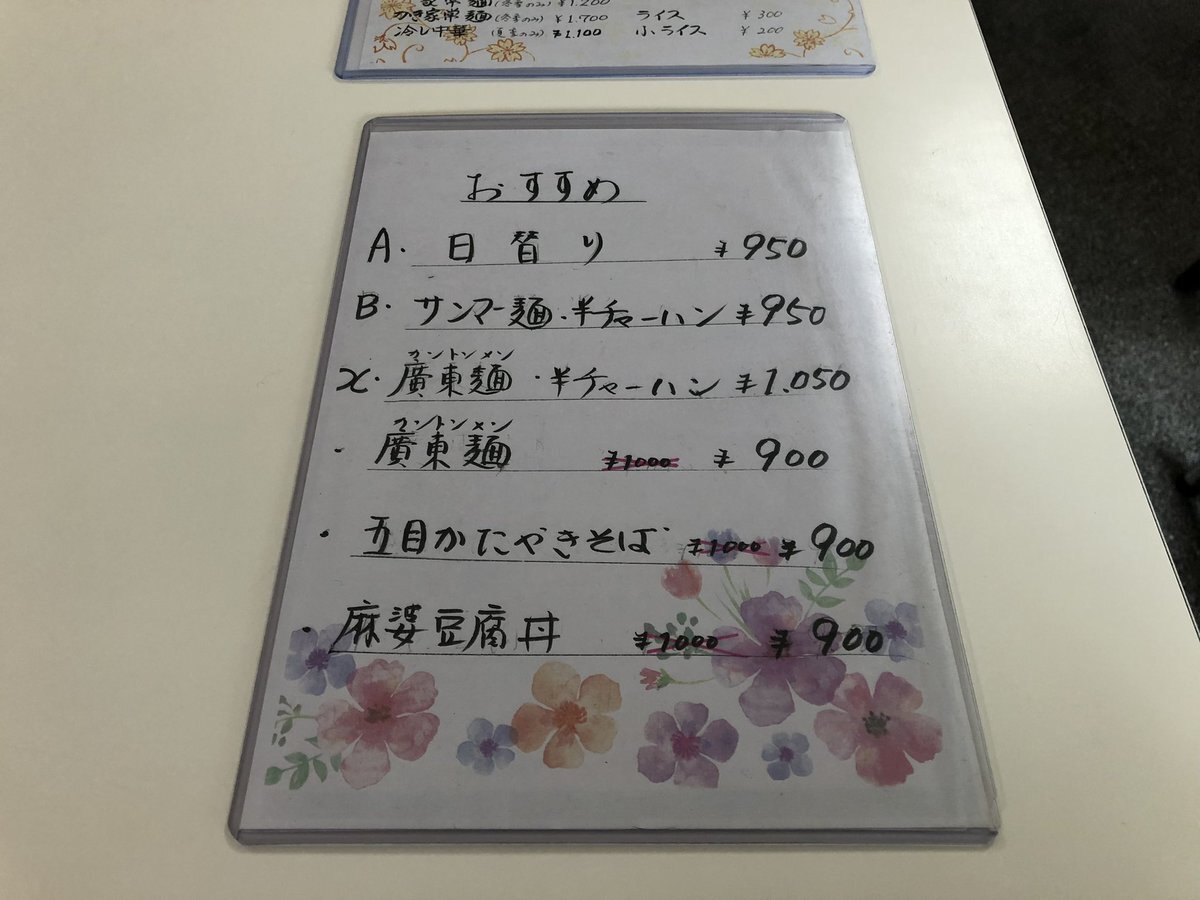 家常麺(冬季のみ)¥1.200
かき家常麺(冬季のみ)¥1.700 ライス ¥300
冷し中華(夏季のみ)¥1.100 小ライス ¥200
おすすめ
A. 日替り ¥950
B. サンマー麺・半チャーハン ¥950
カントンメン
X. 廣東麺・半チャーハン ¥1.050
カントンメン
・廣東麺 ¥1000 ¥900
・五目かたやきそば ¥1000 ¥900
・麻婆豆腐丼 ¥1000 ¥900